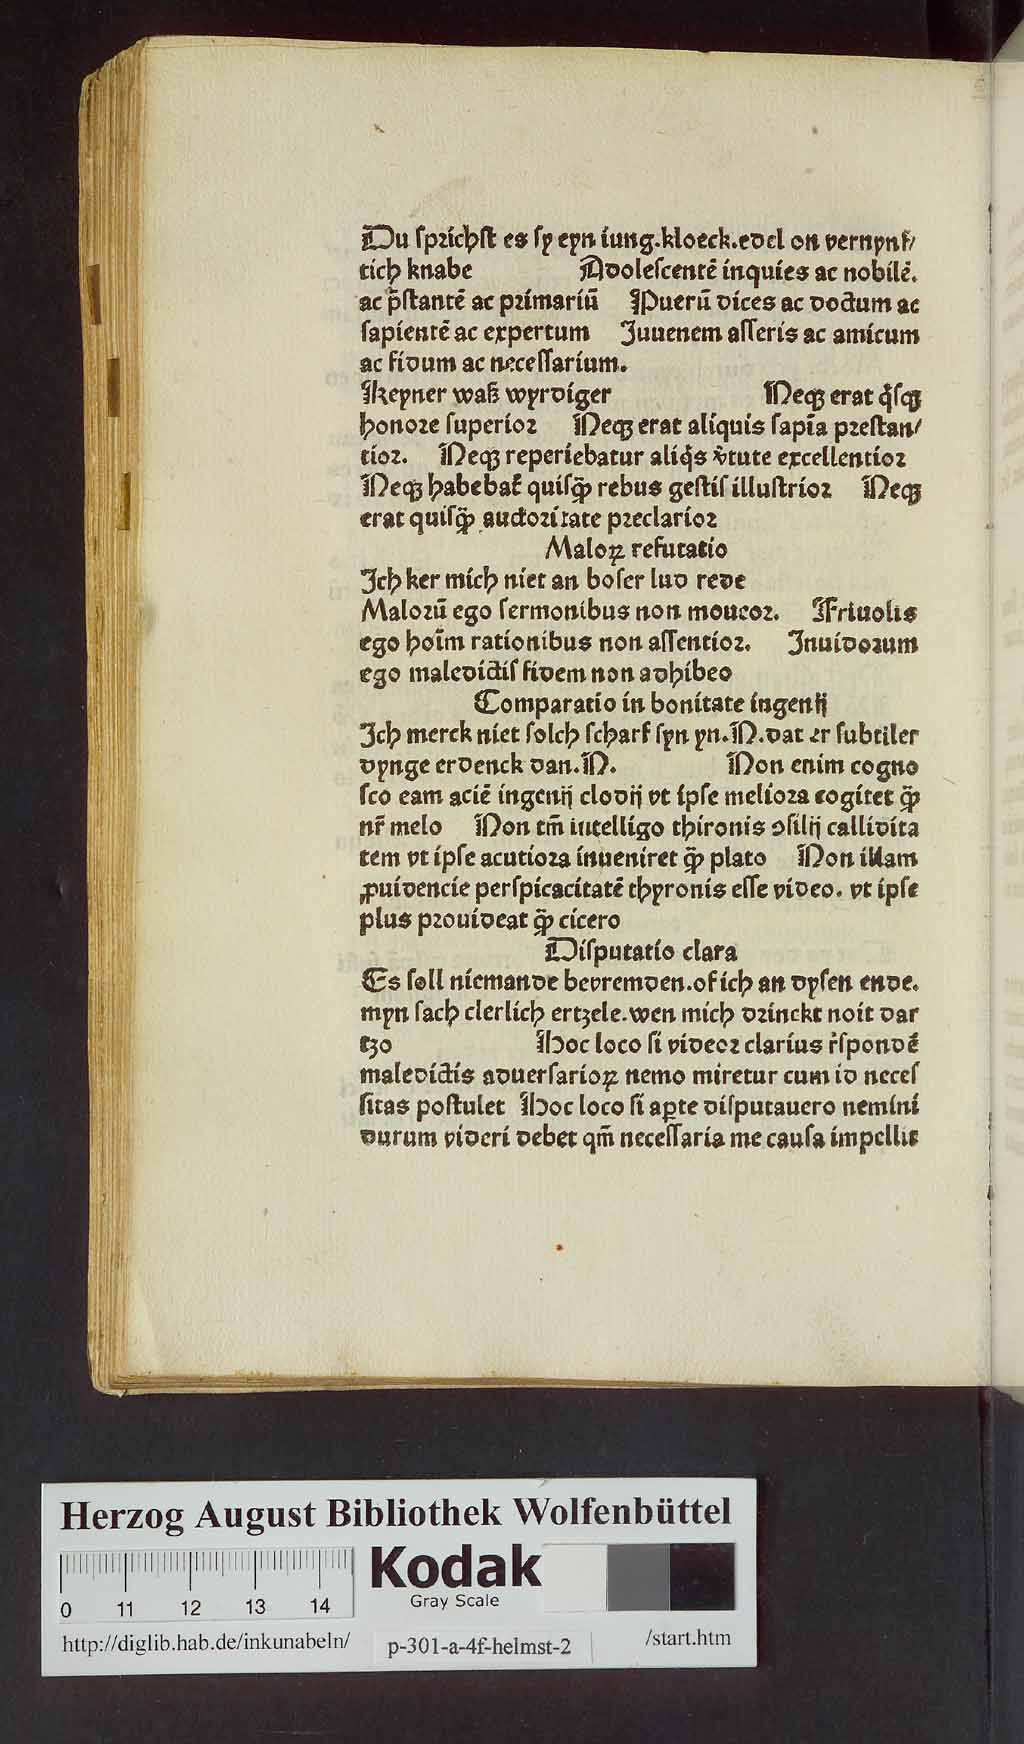 Du ſprichſt es ſy eyn iung.kloeck.edel on vernynf/
tich knabe Adoleſcentē inquies ac nobilē.
ac p̄ſtantē ac primariū Puerū dices ac doctum ac
ſapientē ac expertum Juuenem aſſeris ac amicum
ac fidum ac neceſſarium.
Keyner waß wyrdiger Neqꝫ erat q̇ſqꝫ
honore ſuperior Neqꝫ erat aliquis ſapīa preſtan/
tior. Neqꝫ reperiebatur aliq̇s v̓tute excellentior
Neqꝫ habebat᷑ quiſq̄ꝫ rebus geſtiſ illuſtrior Neqꝫ
erat quiſq̄ꝫ auctoritate preclarior
Maloꝝ refutatio
Ich ker mich niet an boſer lud rede
Malorū ego ſermonibus non moueor. Friuolis
ego hoīm rationibus non aſſentior. Inuidorum
ego maledictiſ fidem non adhibeo
Comparatio in bonitate ingenij
Ich merck niet ſolch ſcharf ſyn yn.N.dat er ſubtiler
dynge erdenck dan.N. Non enim cogno
ſco eam aciē ingenij clodij vt ipſe meliora cogitet q̄ꝫ
nr̄ melo Non tm̄ intelligo thironis ↄſilij callidita
tem vt ipſe acutiora inueniret q̄ꝫ plato Non illam
ꝓuidencie perſpicacitatē thyronis eſſe video. vt ipſe
plus prouideat q̄ꝫ cicero
Diſputatio clara
Es ſoll niemande bevremden.of ich an dyſen ende.
myn ſach clerlich ertzele.wen mich drinckt noit dar
tzo Hoc loco ſi videor clarius r̄ſpondē
maledictis aduerſarioꝝ nemo miretur cum id neceſ
ſitas poſtulet Hoc loco ſi aꝑte diſputauero nemini
durum videri debet qm̄ neceſſaria me cauſa impellit
Herzog August Bibliothek Wolfenbüttel
Kodak
Gray Scale
0 11 12 13 14
http://diglib.hab.de/inkunabeln/ p-301-a-4f-helmst-2 /start.htm